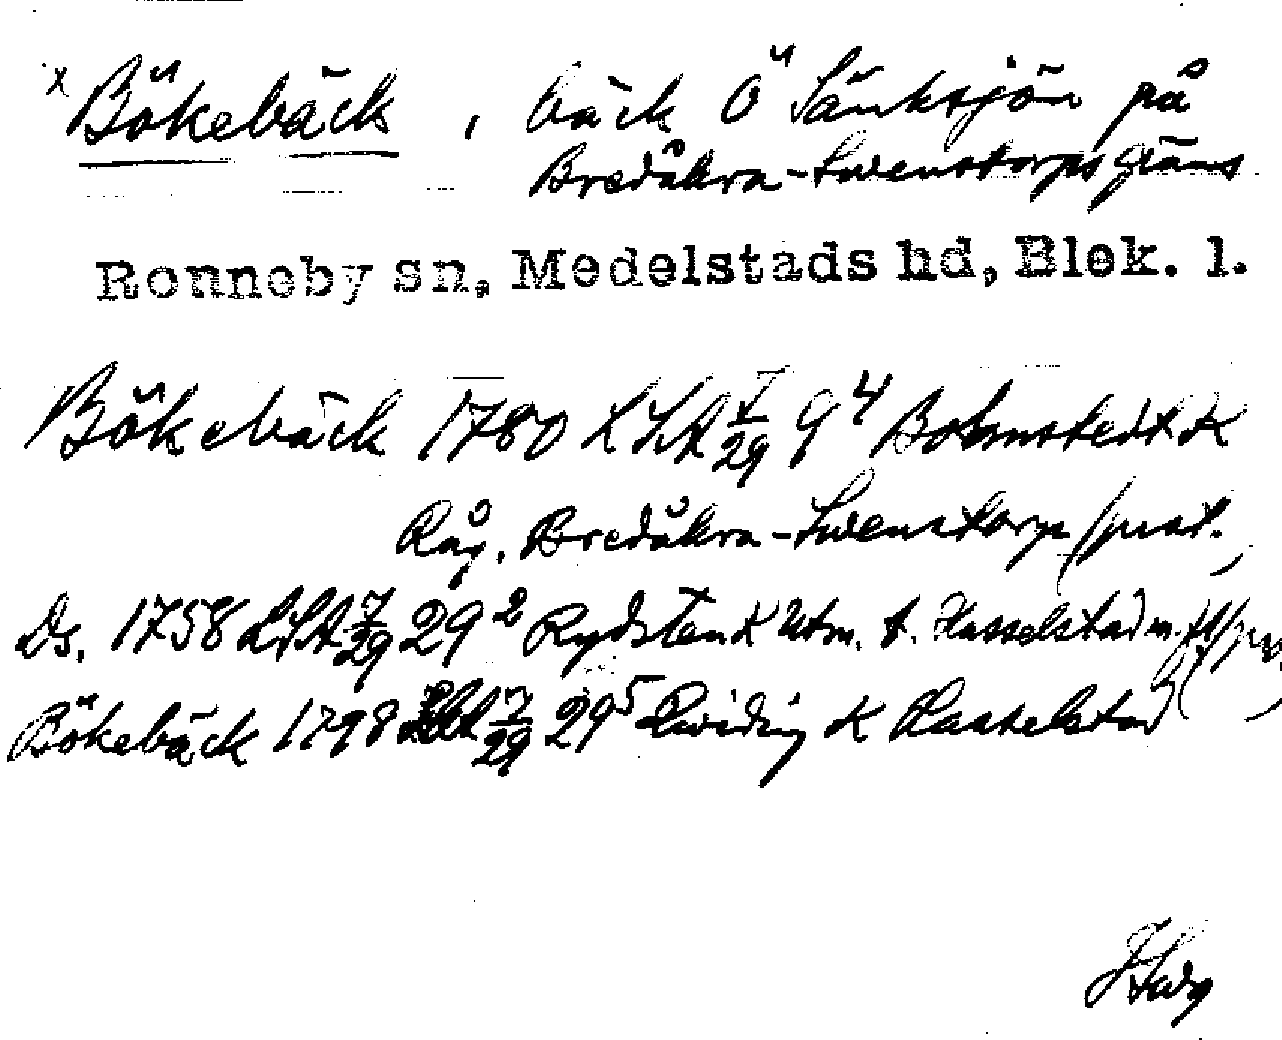 x Bökebäck, bäck Ö Sänksjön på
Bredåkra-Svenstorps gräns
Ronneby sn, Medelstads hd, Blek. l.
Bökebäck 1780 LSA 7/29 9⁴ Bohmstedt K
Råg. Bredåkra-Svenstorp
Ds. 1758 LSA 7/29 29² Rydsten K Utm. t. Hasselstad
Bökebäck 1798 7/29 29⁵ K Hasselstad